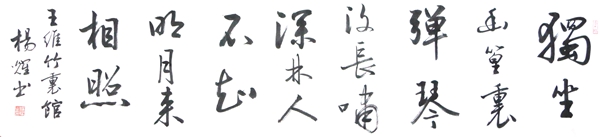 獨坐
幽篁裏
彈琴
復長嘯
深林人
不知
明月来
相照
王維竹裏館
楊耀书